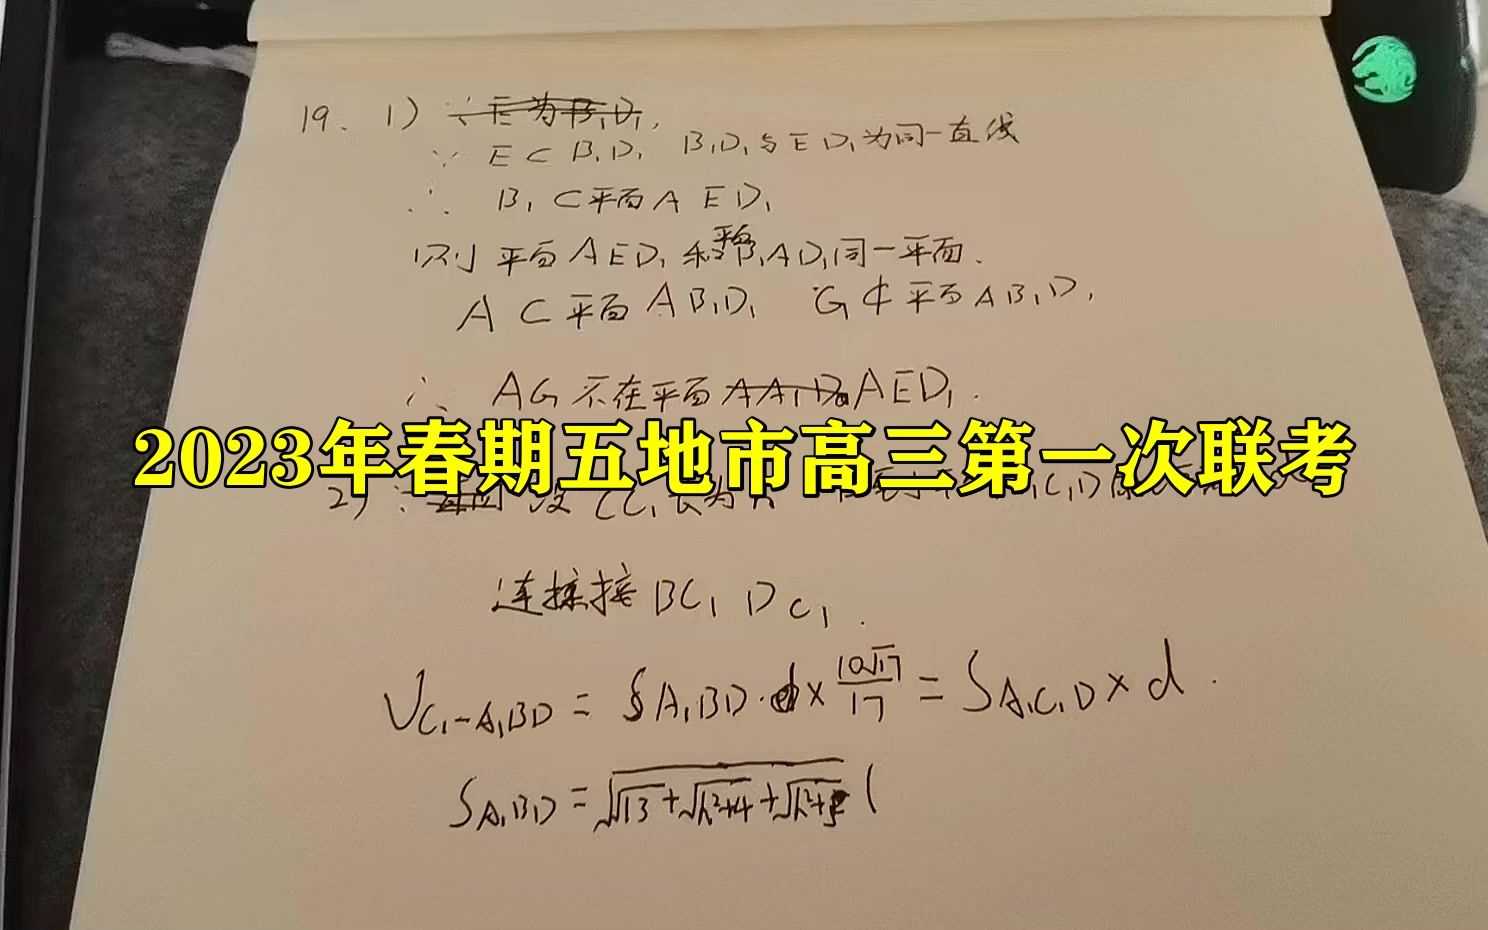 19. 1) ∵E为B₁D₁,
∵ E⊂B₁D₁ B₁D₁与ED₁为同一直线
∴ B₁⊂平面AED₁
则平面AED₁和平面B₁AD₁同一平面.
A⊂平面AB₁D₁ G⊄平面AB₁D₁
∴ AG不在平面AED₁.
2023年春期五地市高三第一次联考
2) 设CC₁长为h
连接 BC₁ DC₁.
V_{C₁-A₁BD} = S_{A₁BD}·×10√17/17 = S_{A₁C₁D}×d.
S_{A₁BD} = √(√13+√(h²+4)+√(h²+